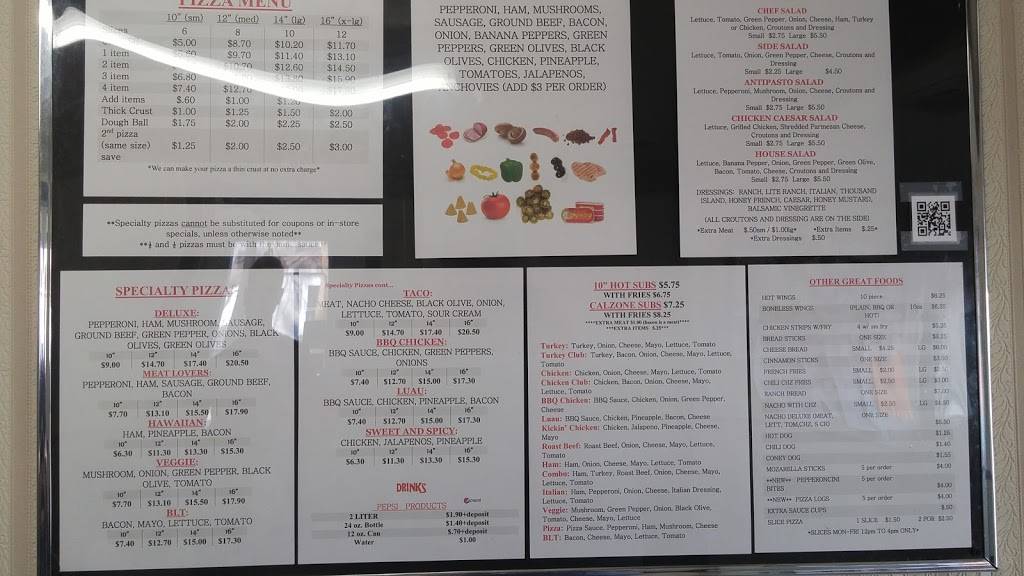 PIZZA MENU
10" (sm) 12" (med) 14" (lg) 16" (x-lg)
6 8 10 12
$5.00 $8.70 $10.20 $11.70
1 item $9.70 $11.40 $13.10
2 item $12.60 $14.50
3 item $6.80 $15.90
4 item $7.40 $12.70
Add items $.60 $1.00
Thick Crust $1.00 $1.25 $1.50 $2.00
Dough Ball $1.75 $2.00 $2.25 $2.50
2nd pizza
(same size) $1.25 $2.00 $2.50 $3.00
save
*We can make your pizza a thin crust at no extra charge*
**Specialty pizzas cannot be substituted for coupons or in-store
specials, unless otherwise noted**
pizzas must be with the same sauce
PEPPERONI, HAM, MUSHROOMS,
SAUSAGE, GROUND BEEF, BACON,
ONION, BANANA PEPPERS, GREEN
PEPPERS, GREEN OLIVES, BLACK
OLIVES, CHICKEN, PINEAPPLE,
TOMATOES, JALAPENOS,
ANCHOVIES (ADD $3 PER ORDER)
CHEF SALAD
Lettuce, Tomato, Green Pepper, Onion, Cheese, Ham, Turkey
or Chicken, Croutons and Dressing
Small $2.75 Large $5.50
SIDE SALAD
Lettuce, Tomato, Onion, Green Pepper, Cheese, Croutons and
Dressing
Small $2.25 Large $4.50
ANTIPASTO SALAD
Lettuce, Pepperoni, Mushroom, Onion, Cheese, Croutons and
Dressing
Small $2.75 Large $5.50
CHICKEN CAESAR SALAD
Lettuce, Grilled Chicken, Shredded Parmesan Cheese,
Croutons and Dressing
Small $2.75 Large $5.50
HOUSE SALAD
Lettuce, Banana Pepper, Onion, Green Pepper, Green Olive,
Bacon, Tomato, Cheese, Croutons and Dressing
Small $2.75 Large $5.50
DRESSINGS: RANCH, LITE RANCH, ITALIAN, THOUSAND
ISLAND, HONEY FRENCH, CAESAR, HONEY MUSTARD,
BALSAMIC VINEGRETTE
(ALL CROUTONS AND DRESSING ARE ON THE SIDE)
*Extra Meat $.50sm / $1.00lg* *Extra Items $.25*
*Extra Dressings $.50
SPECIALTY PIZZAS
DELUXE:
PEPPERONI, HAM, MUSHROOM, SAUSAGE,
GROUND BEEF, GREEN PEPPER, ONIONS, BLACK
OLIVES, GREEN OLIVES
10" 12" 14" 16"
$9.00 $14.70 $17.40 $20.50
MEAT LOVERS:
PEPPERONI, HAM, SAUSAGE, GROUND BEEF,
BACON
10" 12" 14" 16"
$7.70 $13.10 $15.50 $17.90
HAWAIIAN:
HAM, PINEAPPLE, BACON
10" 12" 14" 16"
$6.30 $11.30 $13.30 $15.30
VEGGIE:
MUSHROOM, ONION, GREEN PEPPER, BLACK
OLIVE, TOMATO
10" 12" 14" 16"
$7.70 $13.10 $15.50 $17.90
BLT:
BACON, MAYO, LETTUCE, TOMATO
10" 12" 14" 16"
$7.40 $12.70 $15.00 $17.30
Specialty Pizzas cont...
TACO:
MEAT, NACHO CHEESE, BLACK OLIVE, ONION,
LETTUCE, TOMATO, SOUR CREAM
10" 12" 14" 16"
$9.00 $14.70 $17.40 $20.50
BBQ CHICKEN:
BBQ SAUCE, CHICKEN, GREEN PEPPERS,
ONIONS
10" 12" 14" 16"
$7.40 $12.70 $15.00 $17.30
LUAU:
BBQ SAUCE, CHICKEN, PINEAPPLE, BACON
10" 12" 14" 16"
$7.40 $12.70 $15.00 $17.30
SWEET AND SPICY:
CHICKEN, JALAPENOS, PINEAPPLE
10" 12" 14" 16"
$6.30 $11.30 $13.30 $15.30
DRINKS
PEPSI PRODUCTS
2 LITER $1.90+deposit
24 oz. Bottle $1.40+deposit
12 oz. Can $.70+deposit
Water $1.00
10" HOT SUBS $5.75
WITH FRIES $6.75
CALZONE SUBS $7.25
WITH FRIES $8.25
****EXTRA MEAT $1.00 (bacon is a meat)****
***EXTRA ITEMS $.25***
Turkey: Turkey, Onion, Cheese, Mayo, Lettuce, Tomato
Turkey Club: Turkey, Bacon, Onion, Cheese, Mayo, Lettuce,
Tomato
Chicken: Chicken, Onion, Cheese, Mayo, Lettuce, Tomato
Chicken Club: Chicken, Bacon, Onion, Cheese, Mayo,
Lettuce, Tomato
BBQ Chicken: BBQ Sauce, Chicken, Onion, Green Pepper,
Cheese
Luau: BBQ Sauce, Chicken, Pineapple, Bacon, Cheese
Kickin' Chicken: Chicken, Jalapeno, Pineapple, Cheese,
Mayo
Roast Beef: Roast Beef, Onion, Cheese, Mayo, Lettuce,
Tomato
Ham: Ham, Onion, Cheese, Mayo, Lettuce, Tomato
Combo: Ham, Turkey, Roast Beef, Onion, Cheese, Mayo,
Lettuce, Tomato
Italian: Ham, Pepperoni, Onion, Cheese, Italian Dressing,
Lettuce, Tomato
Veggie: Mushroom, Green Pepper, Onion, Black Olive,
Tomato, Cheese, Mayo, Lettuce
Pizza: Pizza Sauce, Pepperoni, Ham, Mushroom, Cheese
BLT: Bacon, Cheese, Mayo, Lettuce, Tomato
OTHER GREAT FOODS
HOT WINGS 10 piece $6.25
BONELESS WINGS (PLAIN, BBQ OR 16oz
HOT)
CHICKEN STRIPS W/FRY 4 w/ sm fry $5.25
BREAD STICKS ONE SIZE $5.25
CHEESE BREAD SMALL LG
CINNAMON STICKS ONE SIZE $3.50
FRENCH FRIES SMALL $2.00 LG
CHILI CHZ FRIES SMALL $2.50 LG
RANCH BREAD ONE SIZE
NACHO WITH CHZ SMALL $2.50 LG
NACHO DELUXE (MEAT, ONE SIZE
LETT, TOM,CHZ, S CR) $5.50
HOT DOG $1.25
CHILI DOG $1.40
CONEY DOG $1.55
MOZARELLA STICKS 5 per order $4.00
**NEW** PEPPERONCINI 5 per order
BITES $4.00
**NEW** PIZZA LOGS 3 per order $4.00
EXTRA SAUCE CUPS $.50
SLICE PIZZA 1 SLICE $1.50 2 FOR $2.50
*SLICES MON-FRI 12pm TO 4pm ONLY*